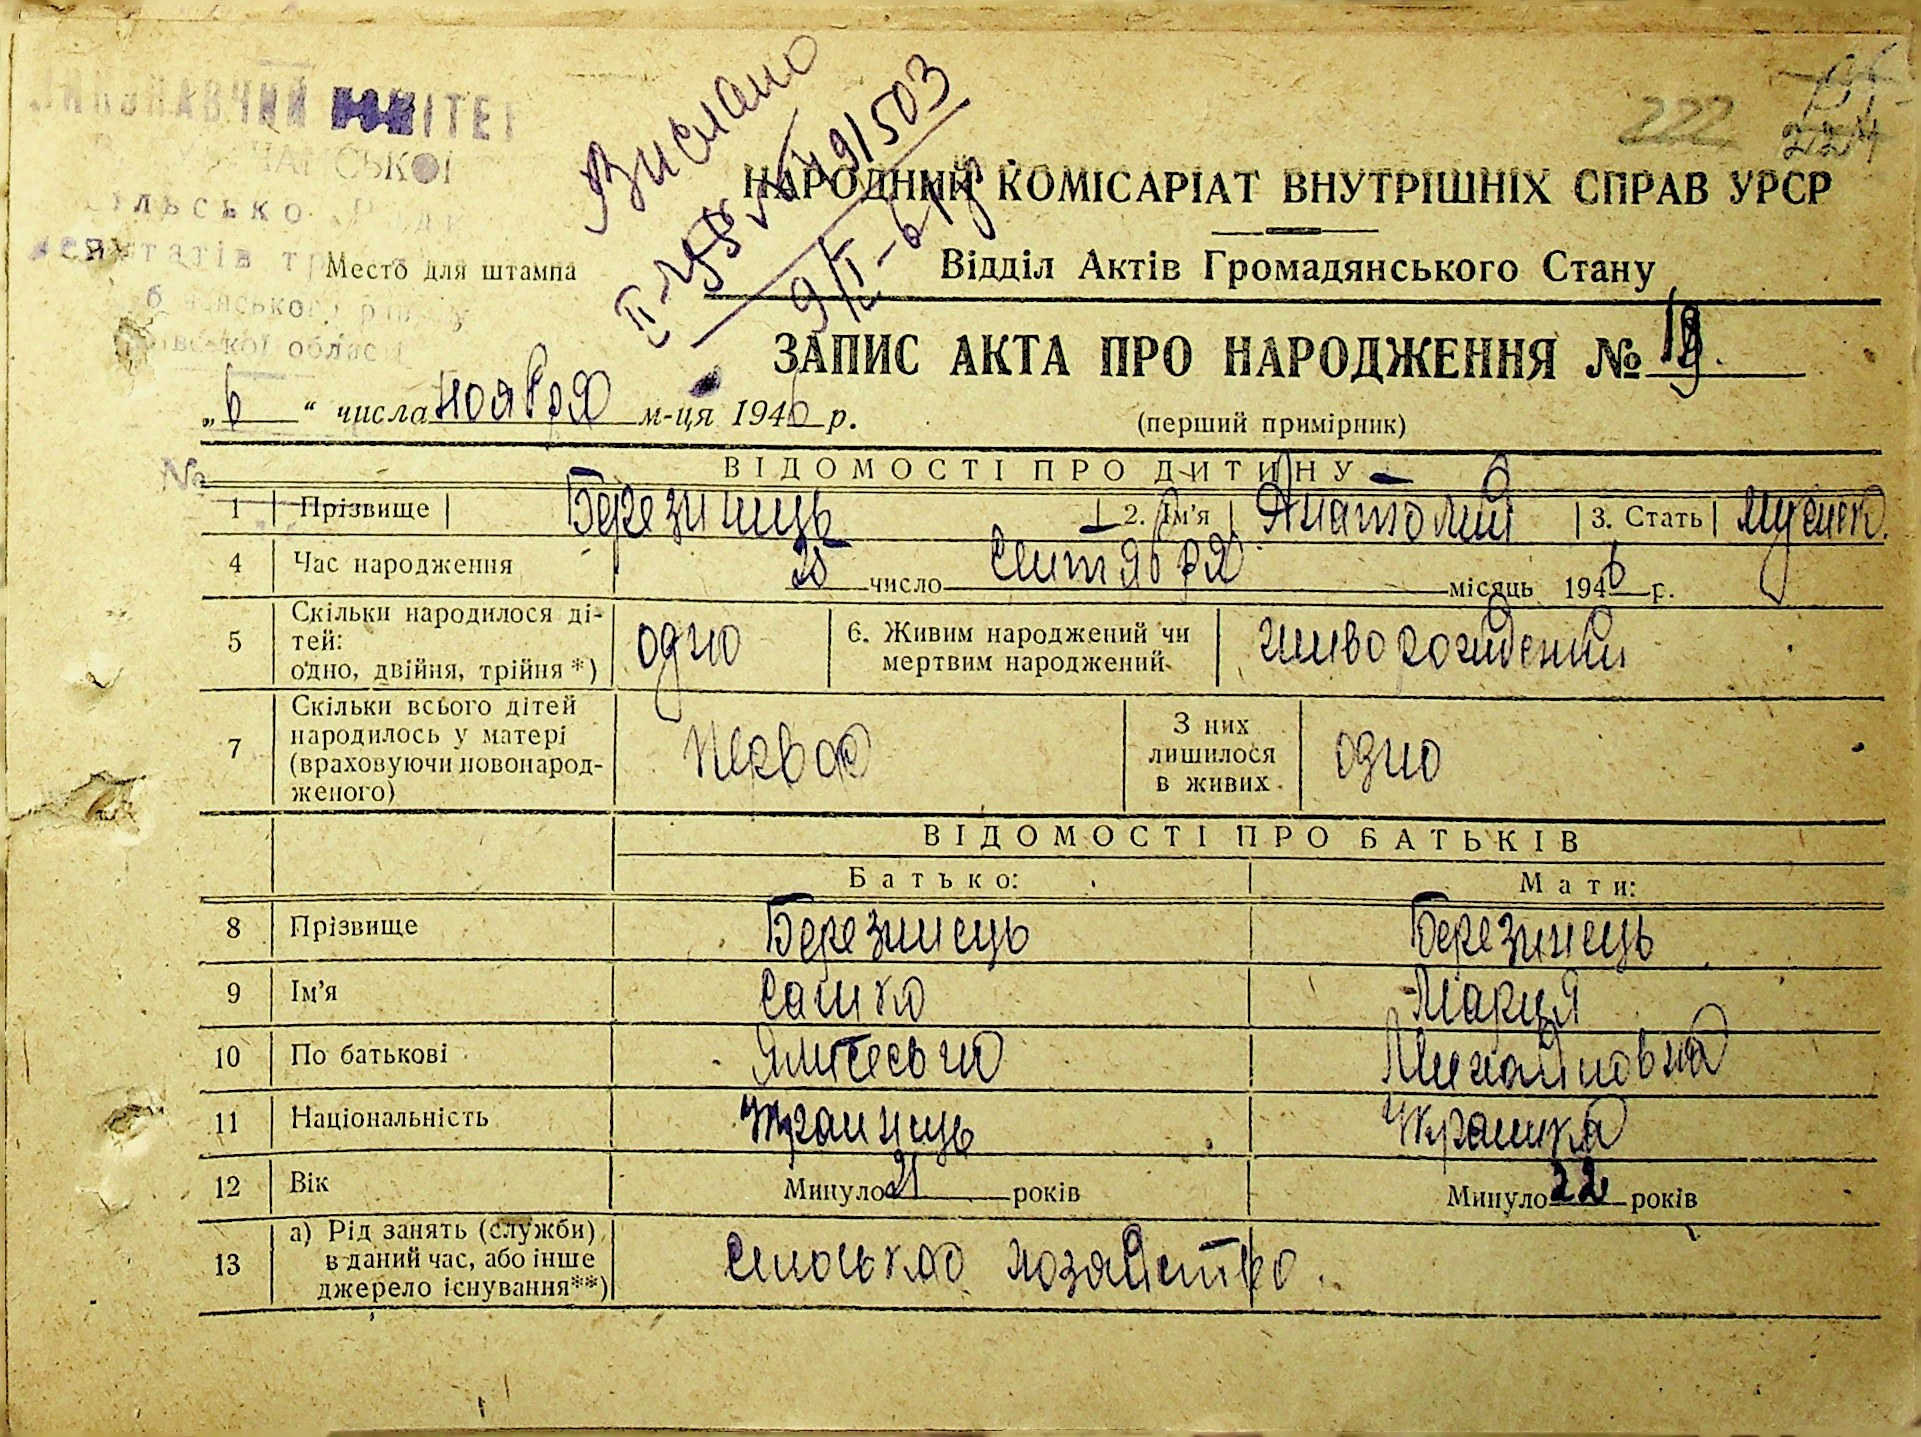 КОМІТЕТ
СЬКОЇ
Вислано
222
224
НАРОДНИЙ КОМІСАРІАТ ВНУТРІШНІХ СПРАВ УРСР
Відділ Актів Громадянського Стану
Место для штампа
області
ЗАПИС АКТА ПРО НАРОДЖЕННЯ №
„6“ числа ноября м-ця 1946 р.
(перший примірник)
№
ВІДОМОСТІ ПРО ДИТИНУ
1 Прізвище Березинець 2. Ім'я Анатолий 3. Стать
4 Час народження 25 число сентября місяць 1946 р.
5 Скільки народилося ді-
тей:
одно, двійня, трійня *) одно
6. Живим народжений чи
мертвим народжений живорожденный
7 Скільки всього дітей
народилось у матері
(враховуючи новонарод-
женого) первое
З них
лишилося
в живих одно
ВІДОМОСТІ ПРО БАТЬКІВ
Батько: Мати:
8 Прізвище Березинець Березинець
9 Ім'я Сашко Мария
10 По батькові Михайловна
11 Національність Украинець Украинка
12 Вік Минуло 21 років Минуло 22 років
13 а) Рід занять (служби)
в даний час, або інше
джерело існування**)